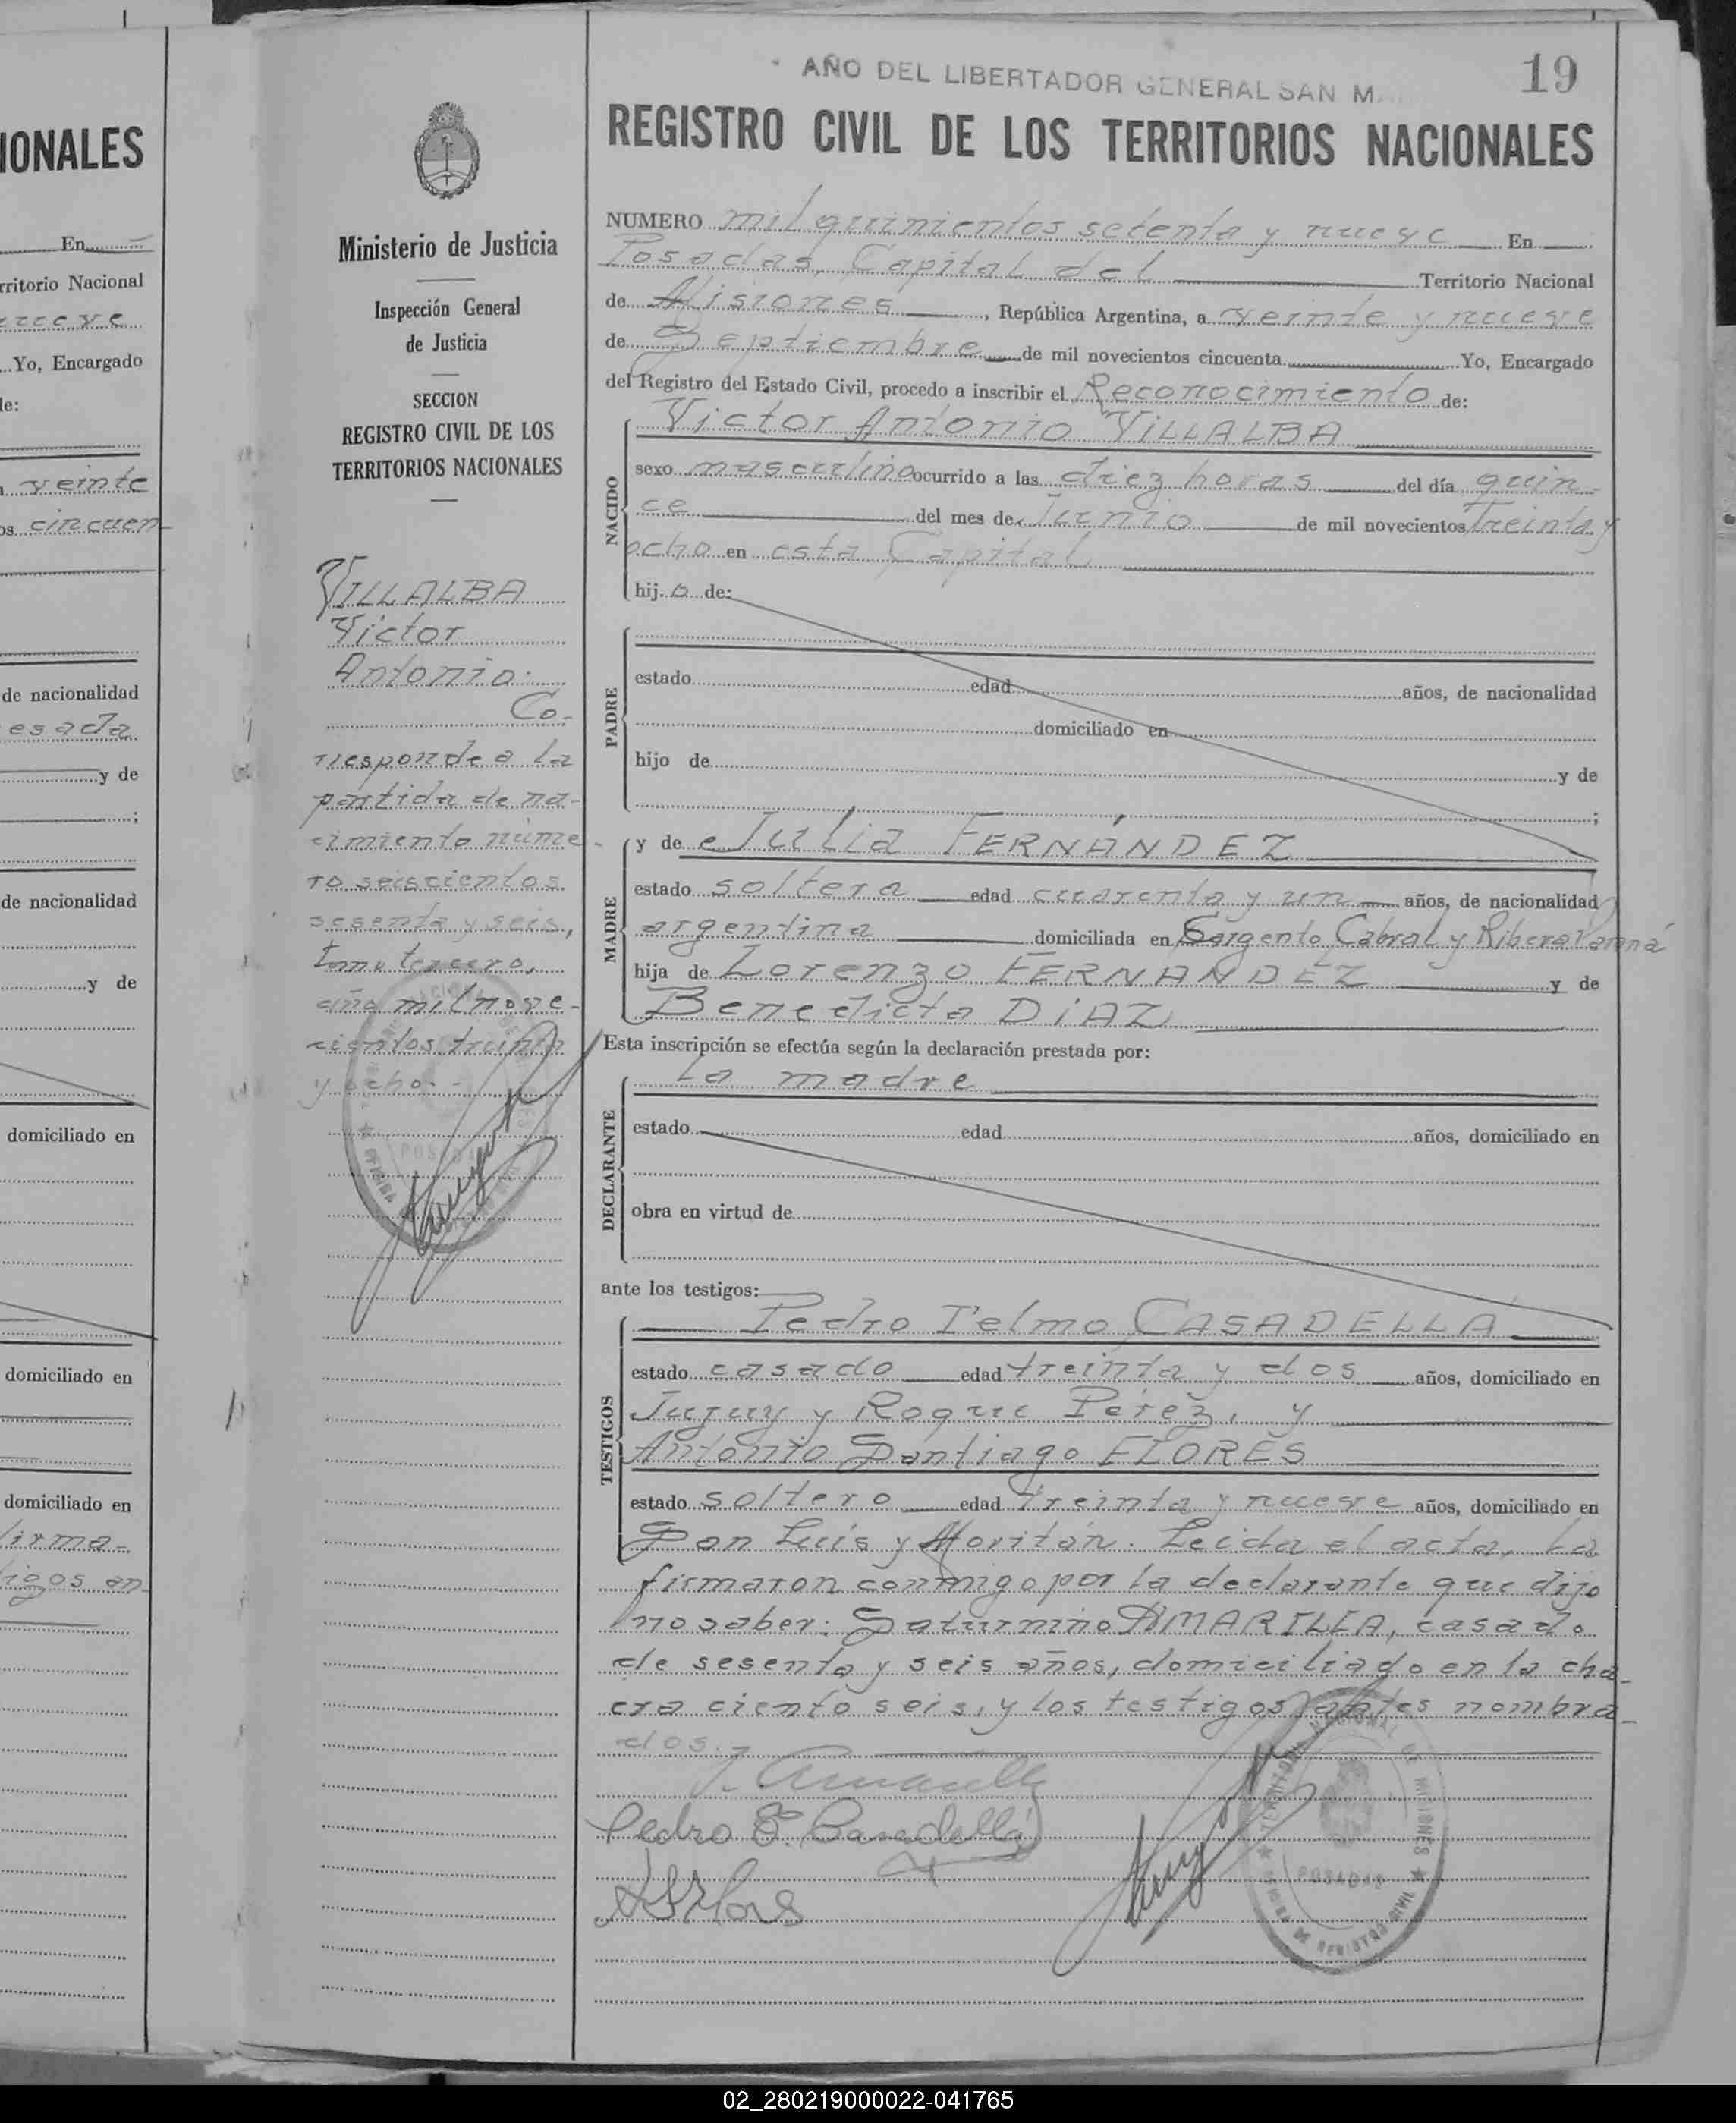 IONALES
En
rritorio Nacional
nueve
Yo, Encargado
de:
veinte
os cincuen-
de nacionalidad
esada
y de
;
de nacionalidad
y de
domiciliado en
domiciliado en
domiciliado en
firma-
tigos an-
Ministerio de Justicia
Inspección General
de Justicia
SECCION
REGISTRO CIVIL DE LOS
TERRITORIOS NACIONALES
VILLALBA
Victor
Antonio.
Co-
rresponde a la
partida de na-
cimiento núme-
ro seiscientos
sesenta y seis,
tomo tercero,
año mil nove-
cientos treinta
y ocho.-
POSADAS
AÑO DEL LIBERTADOR GENERAL SAN M
19
REGISTRO CIVIL DE LOS TERRITORIOS NACIONALES
NUMERO mil quinientos setenta y nueve En
Posadas, Capital del Territorio Nacional
de Misiones, República Argentina, a veinte y nueve
de Septiembre de mil novecientos cincuenta Yo, Encargado
del Registro del Estado Civil, procedo a inscribir el Reconocimiento de:
Victor Antonio VILLALBA
NACIDO
sexo masculino ocurrido a las diez horas del día quin-
ce del mes de Junio de mil novecientos treinta y
ocho en esta Capital
hijo de:
PADRE
estado edad años, de nacionalidad
domiciliado en
hijo de y de
;
MADRE
y de Julia FERNÁNDEZ
estado soltera edad cuarenta y un años, de nacionalidad
argentina domiciliada en Sargento Cabral y Ribera Paraná
hija de Lorenzo FERNANDEZ y de
Benedicta DIAZ
Esta inscripción se efectúa según la declaración prestada por:
La madre
DECLARANTE
estado edad años, domiciliado en
obra en virtud de
ante los testigos:
Pedro Telmo CASADELLA
TESTIGOS
estado casado edad treinta y dos años, domiciliado en
Jujuy y Roque Pérez, y
Antonio Santiago FLORES
estado soltero edad treinta y nueve años, domiciliado en
San Luis y Moritán. Leida el acta, la
firmaron conmigo por la declarante que dijo
no saber: Saturnino AMARILLA, casado
de sesenta y seis años, domiciliado en la cha-
cra ciento seis, y los testigos antes nombra-
dos.
Pedro T. Casadella
TERRITORIO NACIONAL DE MISIONES
POSADAS
OFICINA DE REGISTRO CIVIL
02_280219000022-041765